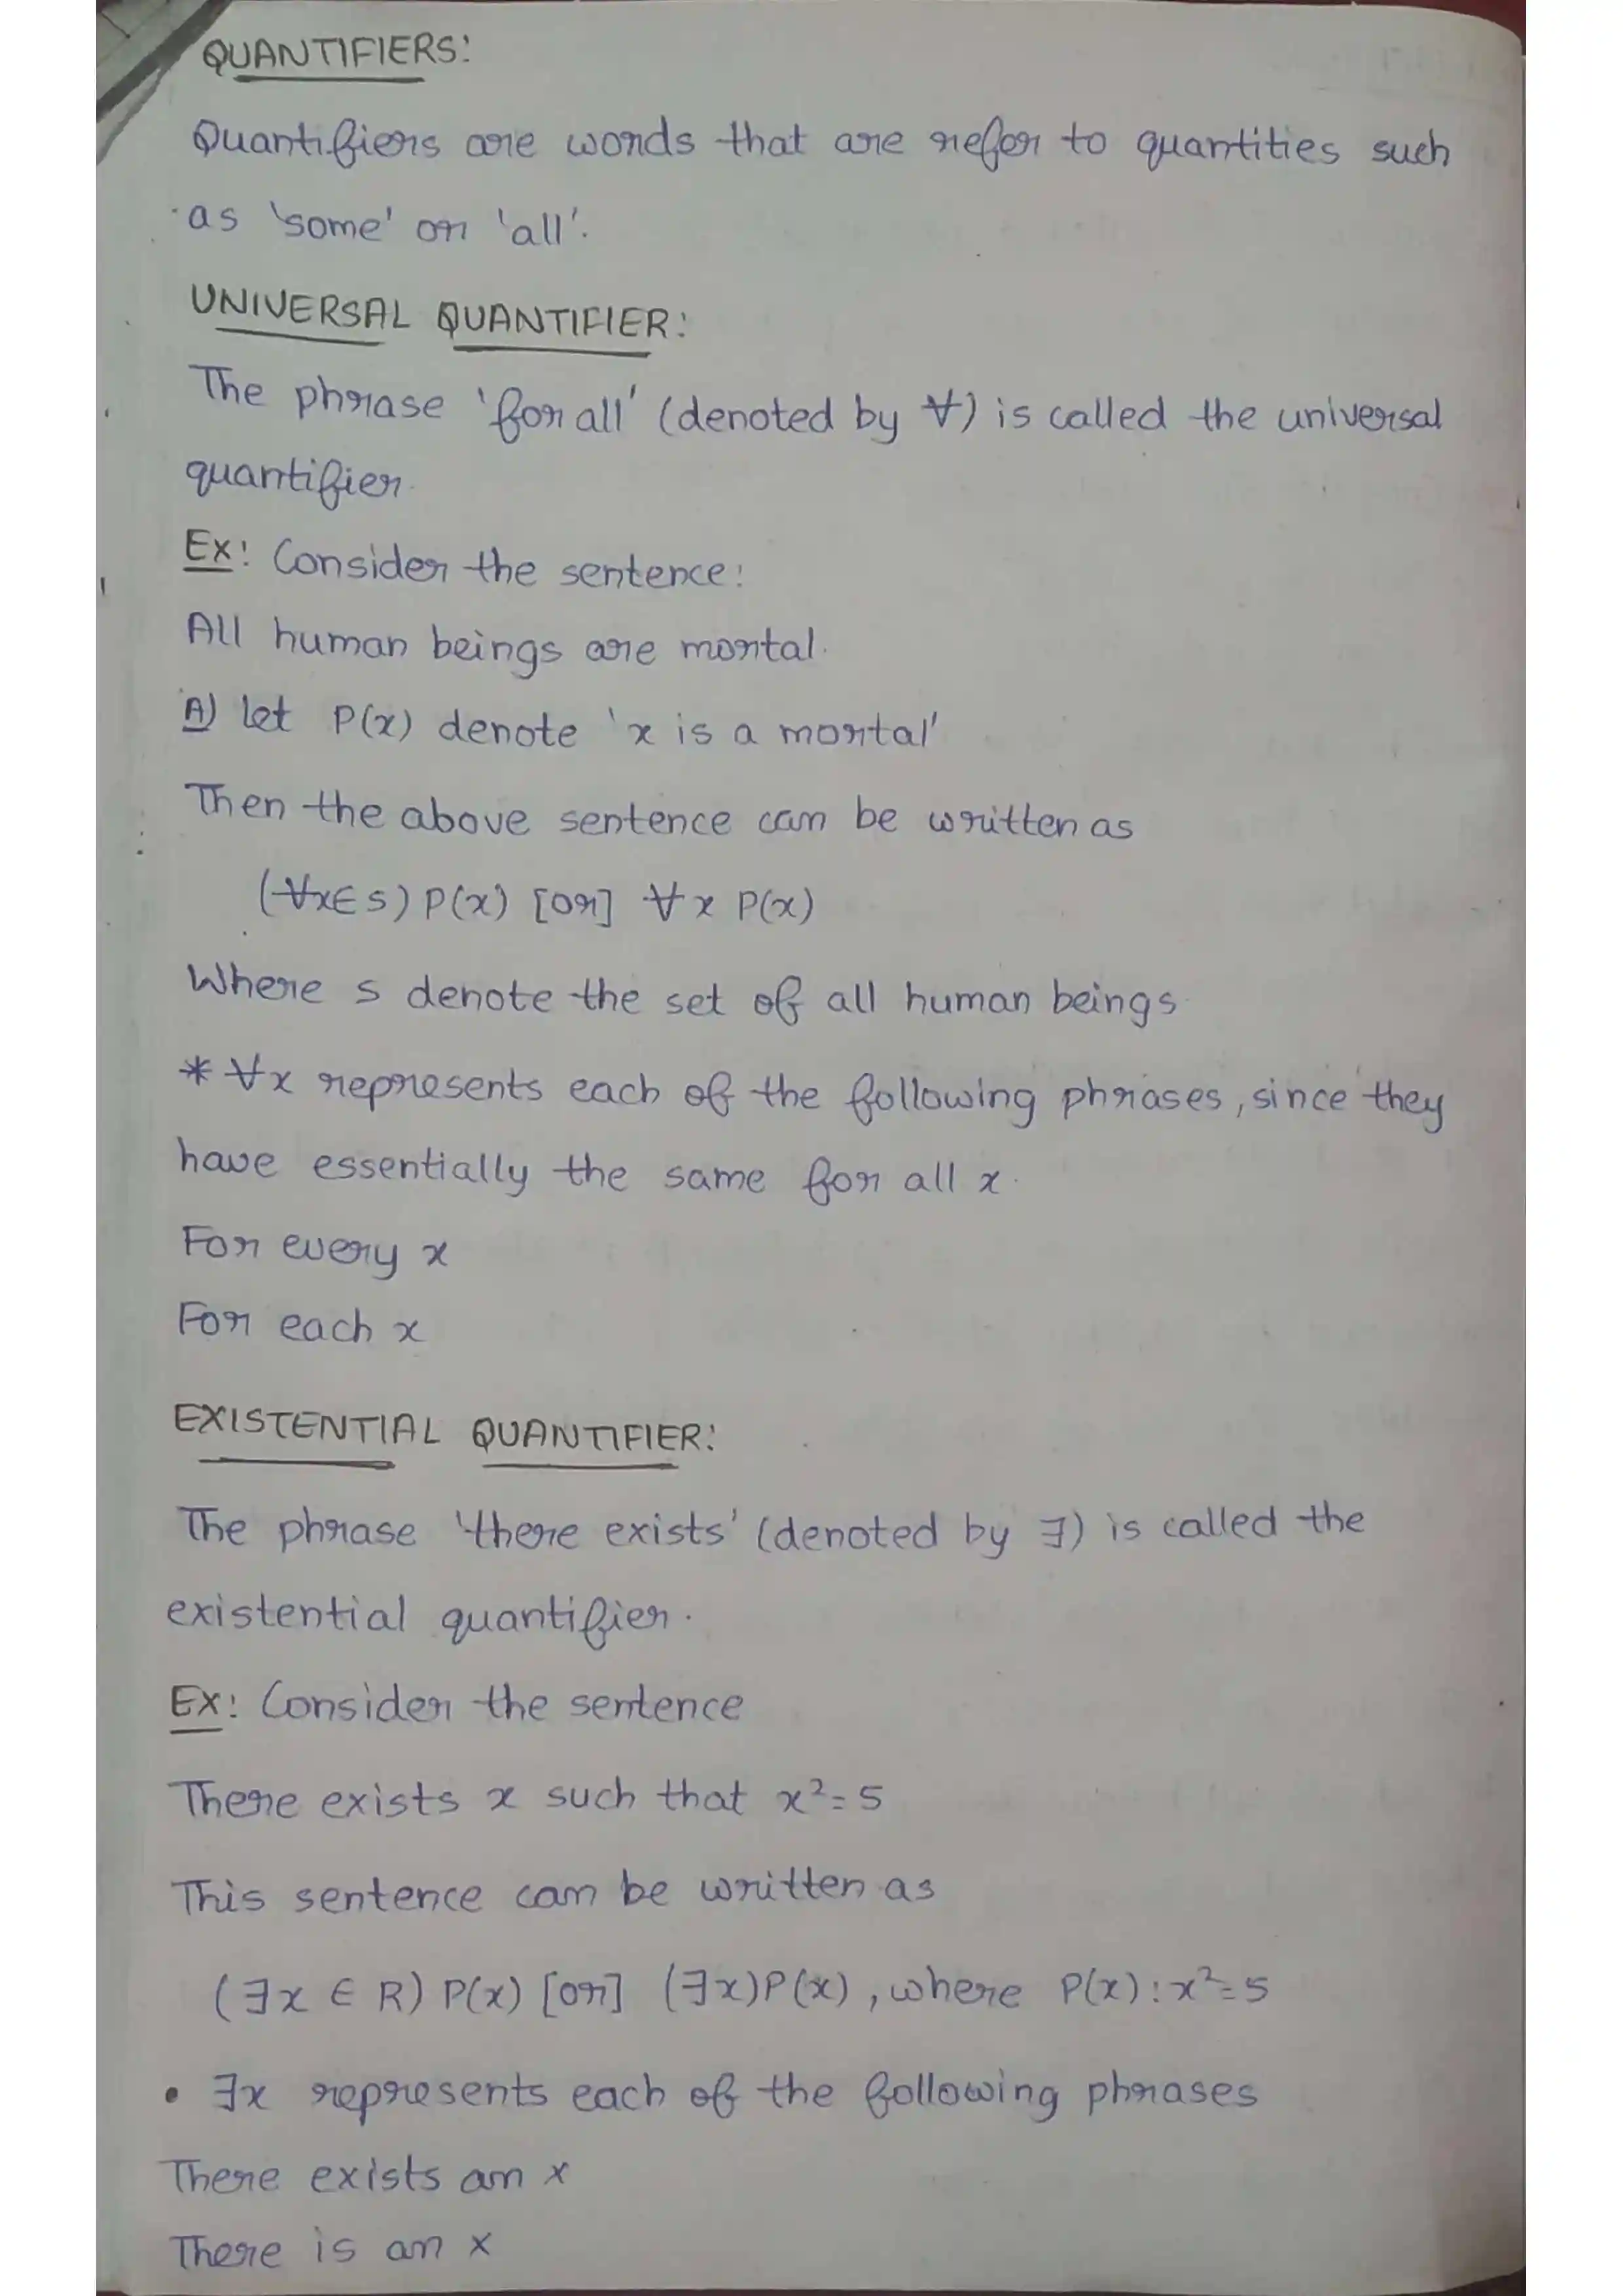 QUANTIFIERS:
Quantifiers are words that are refer to quantities such
as 'some' or 'all'.
UNIVERSAL QUANTIFIER:
The phrase 'for all' (denoted by ∀) is called the universal
quantifier.
Ex: Consider the sentence:
All human beings are mortal.
A) let P(x) denote 'x is a mortal'
Then the above sentence can be written as
(∀x∈s) P(x) [or] ∀x P(x)
Where s denote the set of all human beings.
* ∀x represents each of the following phrases, since they
have essentially the same for all x.
For every x
For each x
EXISTENTIAL QUANTIFIER:
The phrase 'there exists' (denoted by ∃) is called the
existential quantifier.
EX: Consider the sentence
There exists x such that x²=5
This sentence can be written as
(∃x ∈ R) P(x) [or] (∃x)P(x), where P(x): x²=5
• ∃x represents each of the following phrases
There exists an x
There is an x